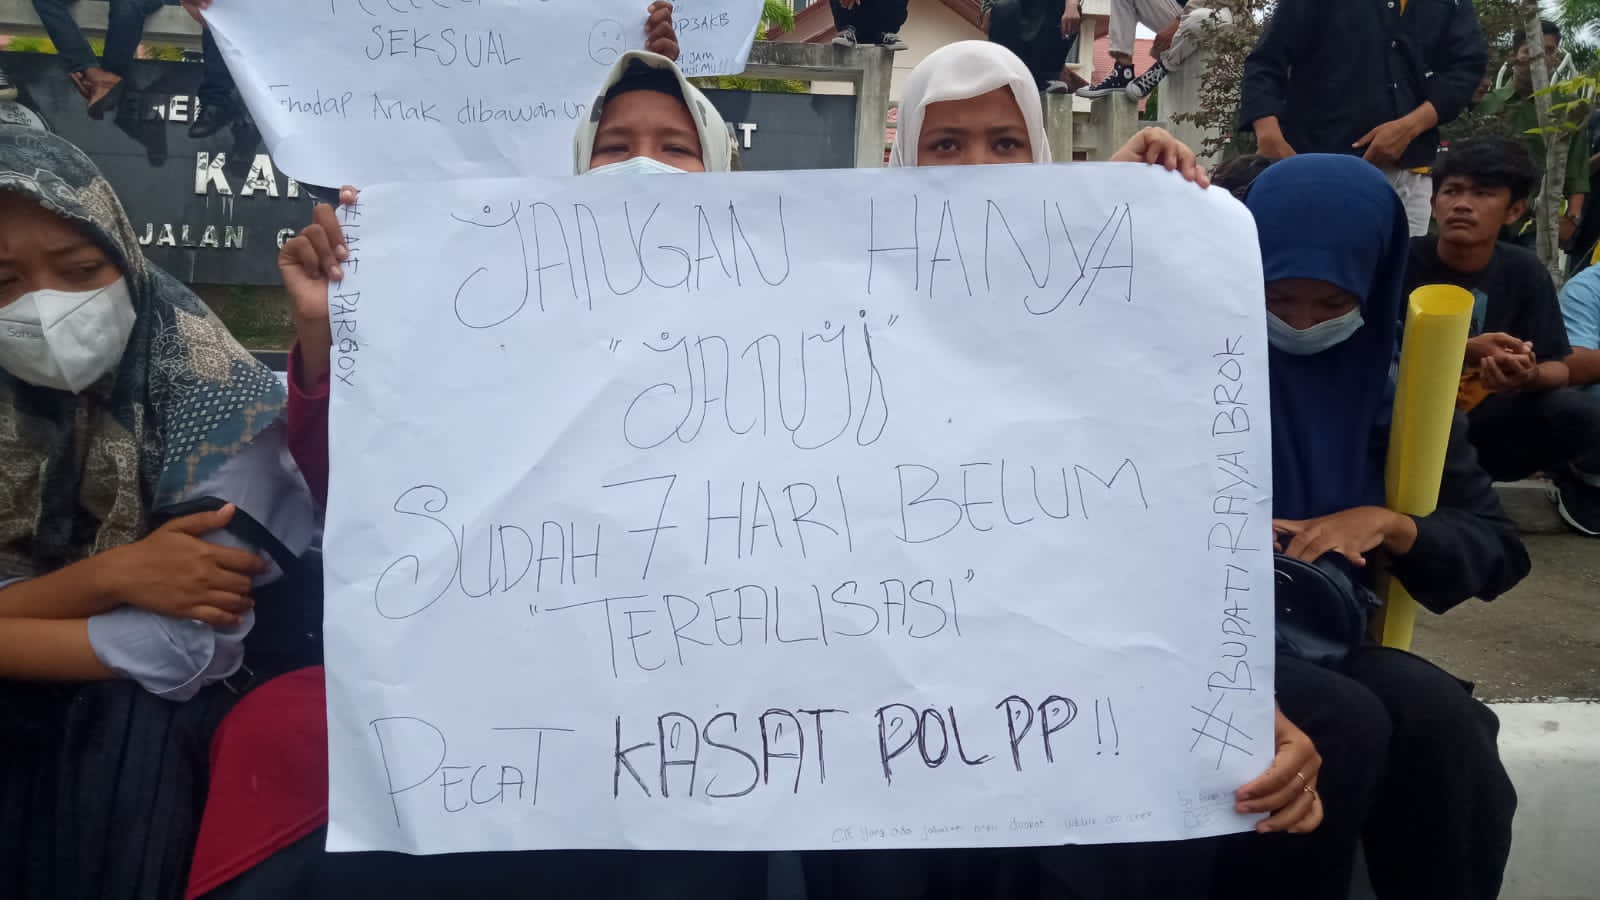 SEKSUAL
Terhadap Anak dibawah
DP3AKB
JAM
KA
JALAN G
JANGAN HANYA
"JANJI"
SUDAH 7 HARI BELUM
"TEREALISASI"
PECAT KASAT POL PP!!
#BUPATI RAYA BROK